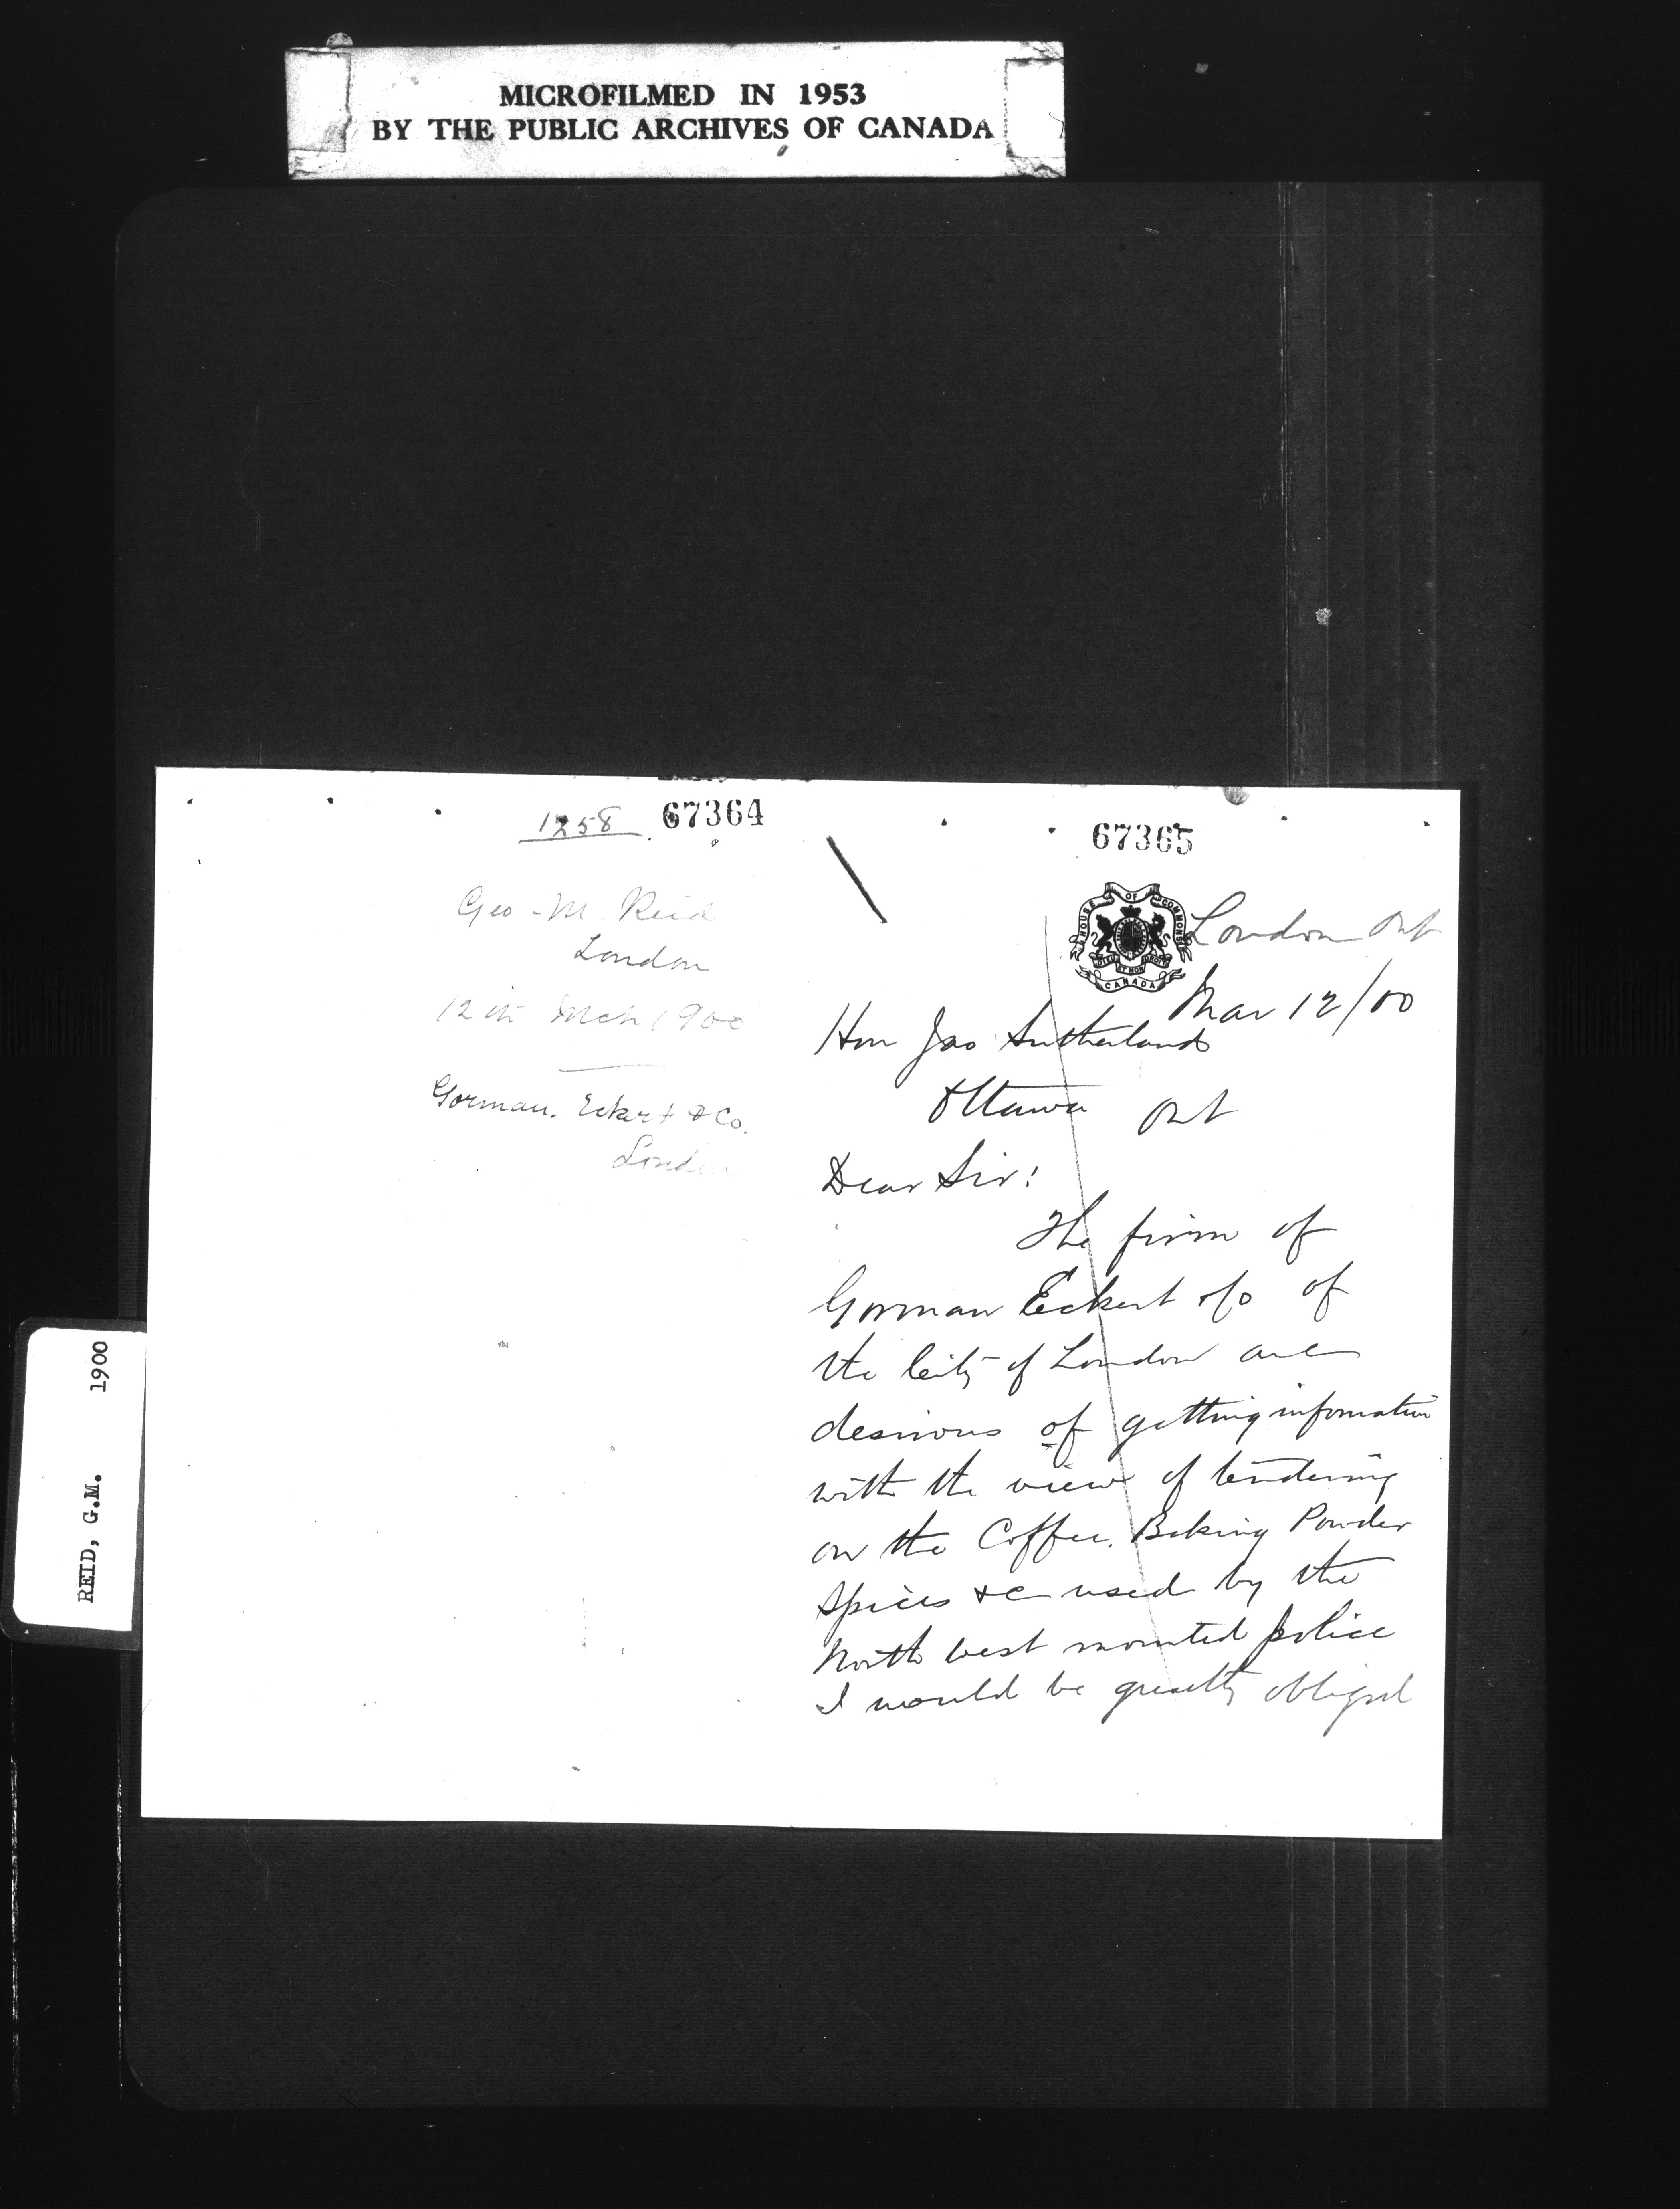 MICROFILMED IN 1953
BY THE PUBLIC ARCHIVES OF CANADA
REID, G.M. 1900
1258 67364
Geo. M. Reid
London
12th Mch 1900
Gorman. Eckert & Co.
London
67365
HOUSE OF COMMONS
DIEU ET MON DROIT
CANADA
London Ont
Mar 12/00
Hon Jas Sutherland
Ottawa Ont
Dear Sir!
The firm of
Gorman Eckert & Co of
the City of London are
desirous of getting information
with the view of tendering
on the Coffee, Baking Powder
Spices &c used by the
North West mounted police
I would be greatly obliged